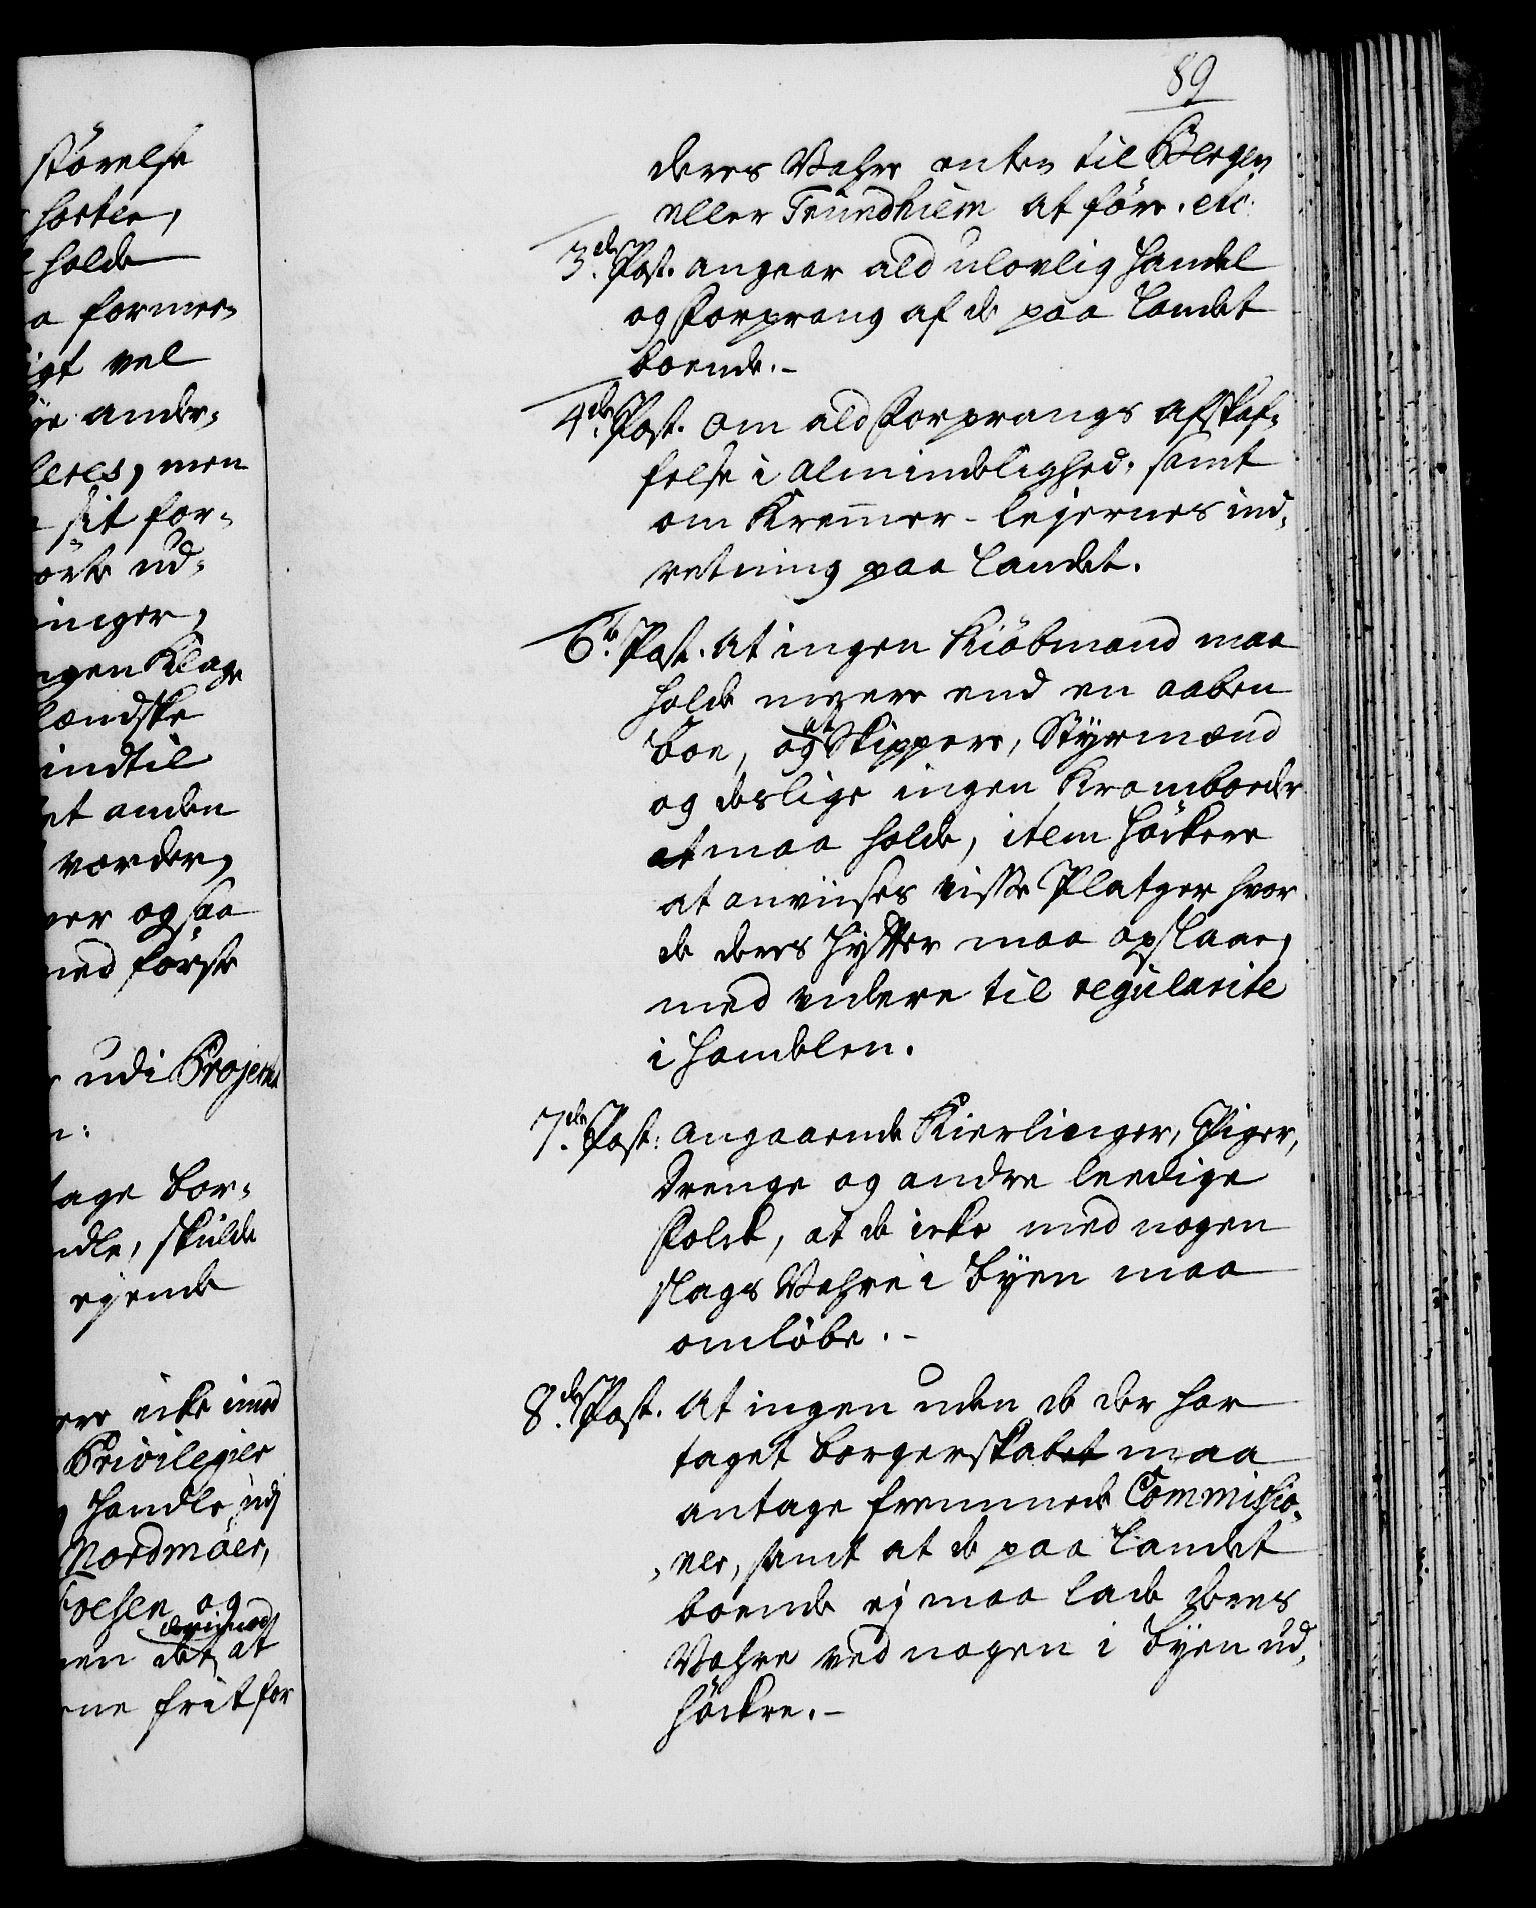 størelse
holde
formee-
vel
ander-
men
sit for-
ud-
Klage
indtil
et anden
vorder,
og saa
med første
udi Project
tage bor-
skulde
ejende
icke imod
Privilegier
handle udj
Nordmöer,
og
at
frit for
89
deres Vahre enten til Bergen
eller Trundhiem at före. etc.
3de Post. angaar ald ulovlig handel
og Forprang af de paa Landet
boende.-
4de Post. om ald Forprangs afskaf-
felse i almindelighed, samt
om Kremmer-lejernes ind-
retning paa Landet.
6te Post. at ingen Kiöbmand maa
holde meere end en aaben
boe, og at Skippere, Styrmænd
og deslige ingen Kramboeder
at maa holde, item höckere
at anviises visse Platzer hvor
de deres hytter maa opslaae,
med videre til regularite
i handelen.
7de Post: angaaende Kierlinger, Piger,
Drenge og andre leedige
Folck, at de icke med nogen
slags Vahre i byen maa
omlöbe.-
8de Post. at ingen uden de der har
taget borgerskabet maa
antage fremmede Commissio-
ner, samt at de paa Landet
boende ej maa lade deres
Vahre ved nogen i byen ud-
höckre.-